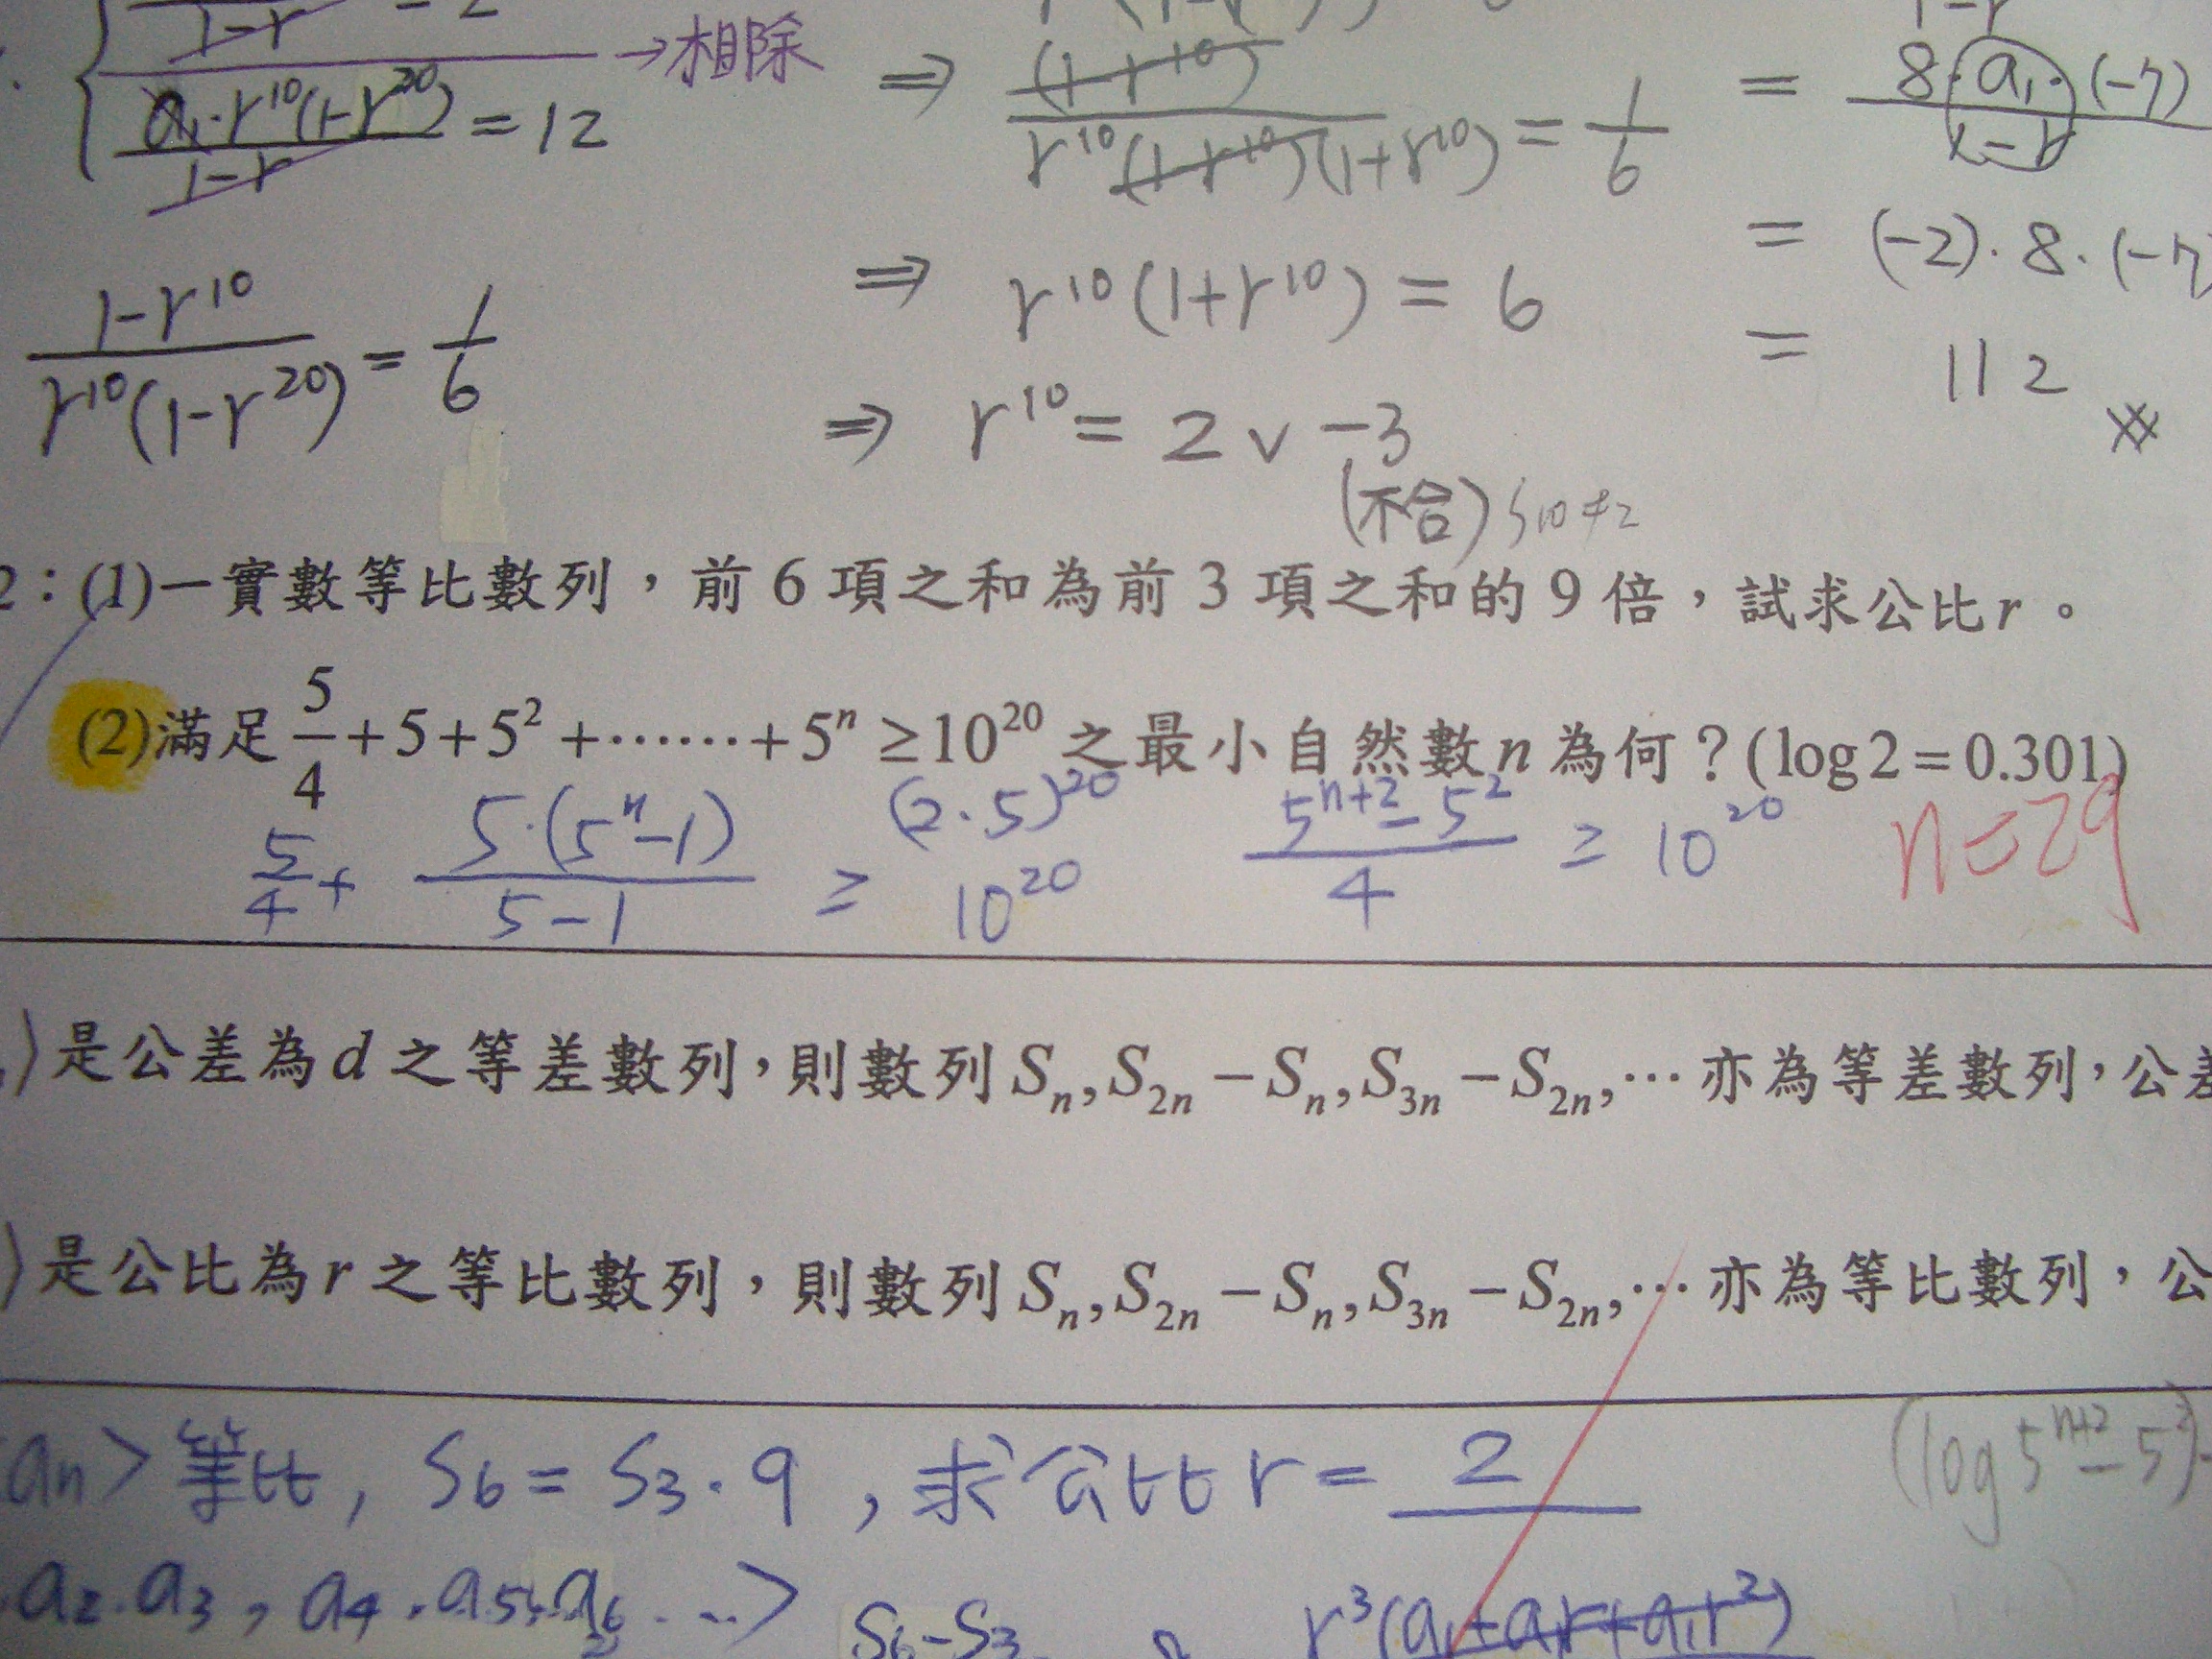 1-r = 2
→相除
a₁·r¹⁰(1-r²⁰) / 1-r = 12
⇒ (1-r¹⁰) / r¹⁰(1-r¹⁰)(1+r¹⁰) = 1/6
= 8·a₁·(-7) / 1-r
= (-2)·8·(-7)
1-r¹⁰ / r¹⁰(1-r²⁰) = 1/6
⇒ r¹⁰(1+r¹⁰) = 6
= 112
⇒ r¹⁰ = 2 ∨ -3
(不合) S₁₀≠2
2：(1)一實數等比數列，前 6 項之和為前 3 項之和的 9 倍，試求公比r。
(2)滿足 5/4+5+5²+……+5ⁿ ≥10²⁰ 之最小自然數n 為何？(log2=0.301)
(2·5)²⁰
5/4 + 5·(5ⁿ-1) / 5-1 ≥ 10²⁰
5ⁿ⁺²-5² / 4 ≥ 10²⁰
n=29
〉是公差為d 之等差數列，則數列 Sₙ,S₂ₙ−Sₙ,S₃ₙ−S₂ₙ,… 亦為等差數列，公差
〉是公比為r 之等比數列，則數列 Sₙ,S₂ₙ−Sₙ,S₃ₙ−S₂ₙ,… 亦為等比數列，公
aₙ〉等比, S₆ = S₃·9 , 求公比 r = 2
(log5ⁿ⁺²-5²)
a₂.a₃, a₄.a₅.a₆...〉
S₆-S₃
r³(a₁+a₁r+a₁r²)